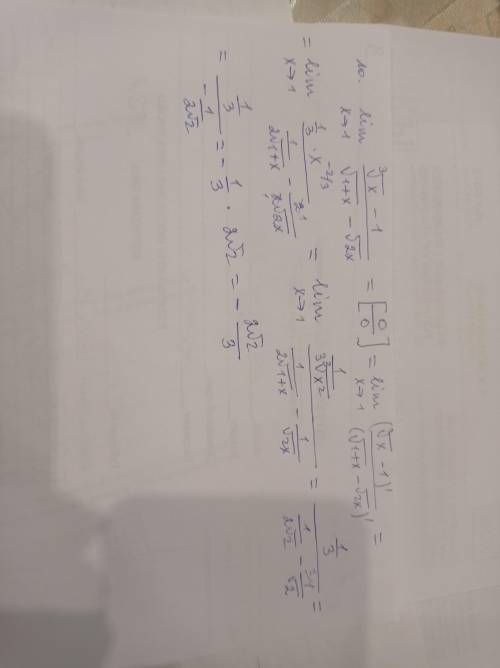 10. lim x→1 (∛x − 1)/(√(1+x) − √(2x)) = [0/0] = lim x→1 (∛x − 1)'/(√(1+x) − √(2x))' =
= lim x→1 (1/3 · x^(−2/3))/(1/(2√(1+x)) − 2/(2√(2x))) = lim x→1 (1/(3∛(x²)))/(1/(2√(1+x)) − 1/√(2x)) = (1/3)/(1/(2√2) − 1/√2) =
= (1/3)/(−1/(2√2)) = −1/3 · 2√2 = −2√2/3